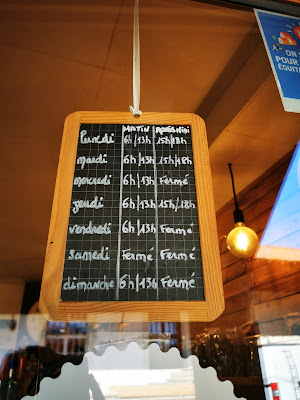 MATIN APRÈS-MIDI
Lundi 6h/13h 15h/18h
mardi 6h/13h 15h/18h
mercredi 6h/13h Fermé
jeudi 6h/13h 15h/18h
vendredi 6h/13h Fermé
samedi Fermé Fermé
dimanche 6h/13h Fermé
ON
POUR
ÉQUITA